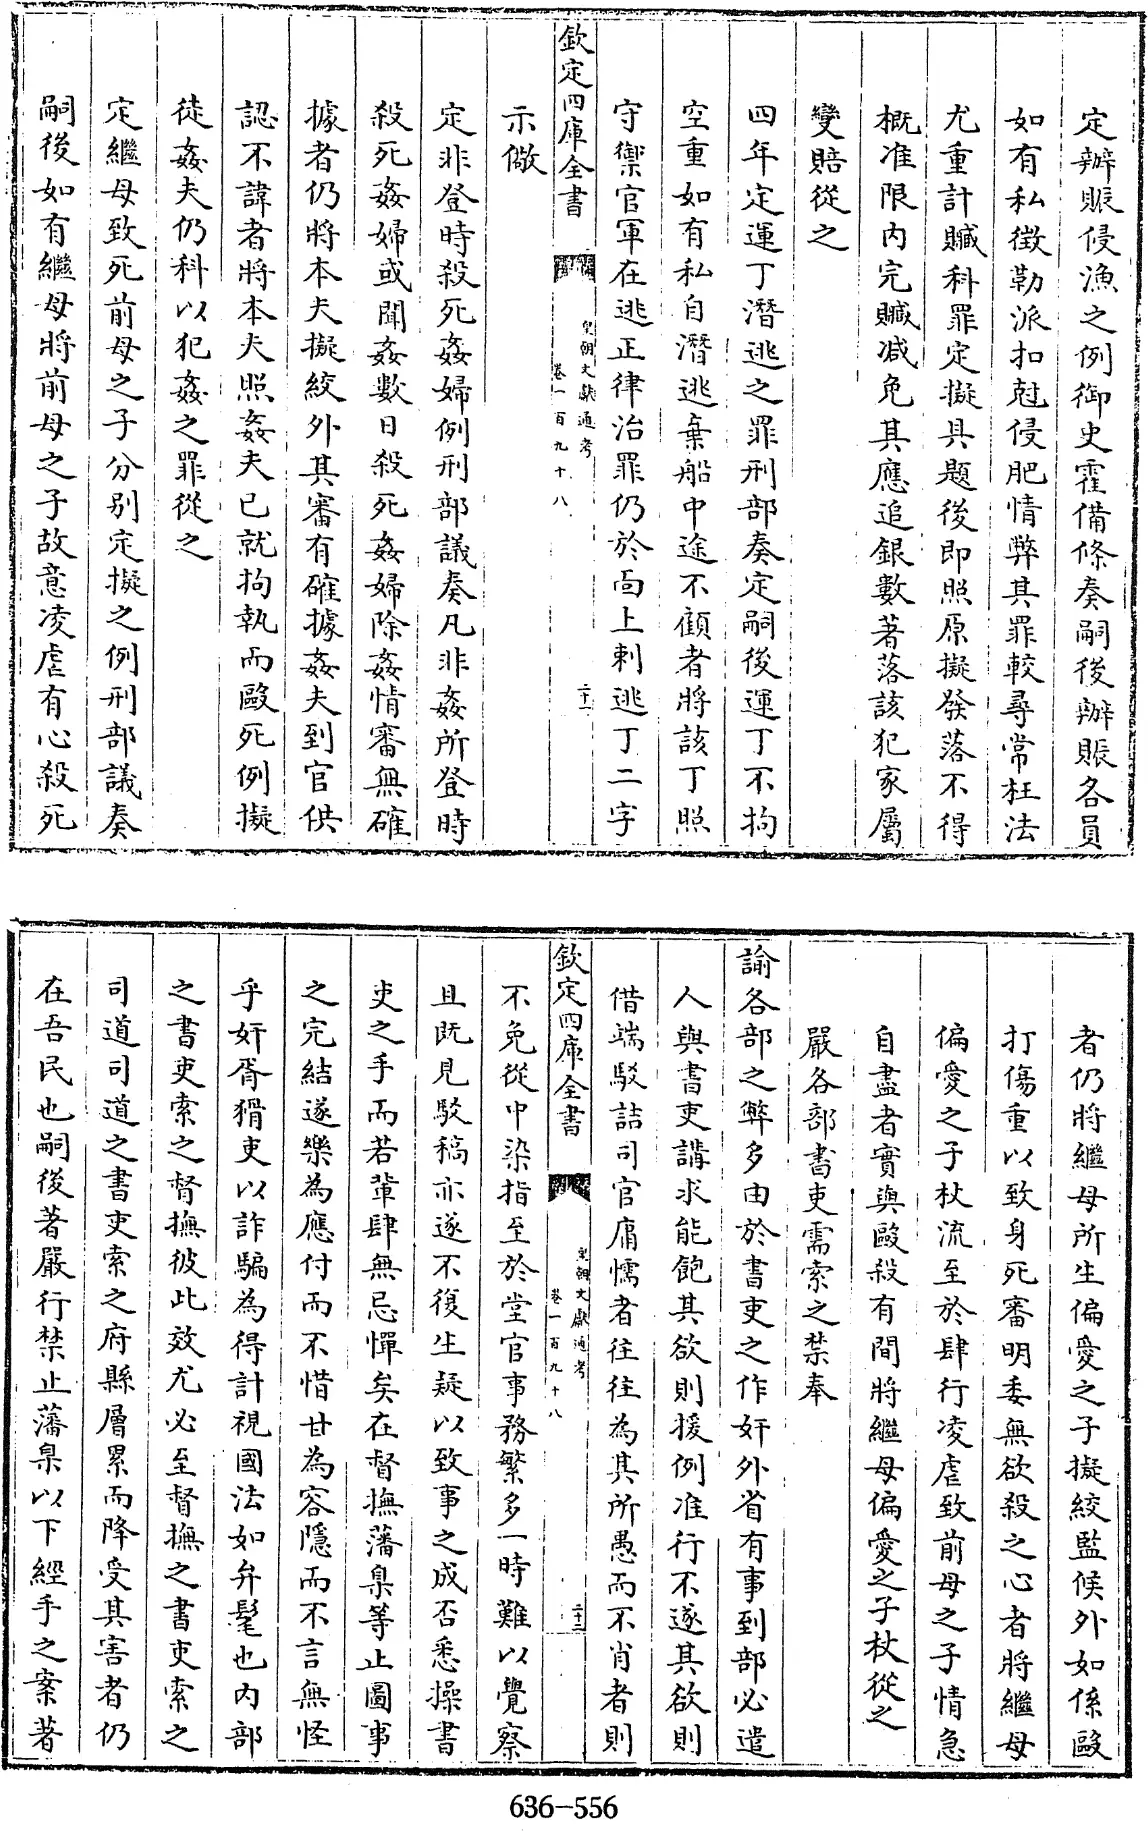 定辦賑侵漁之例御史霍備條奏嗣後辦賑各員
如有私徵勒派扣尅侵肥情弊其罪較尋常枉法
尤重計贓科罪定擬具題後即照原擬發落不得
概准限内完贓減免其應追銀數著落該犯家屬
變賠從之
四年定運丁潛逃之罪刑部奏定嗣後運丁不拘
空重如有私自潛逃棄船中途不顧者將該丁照
守禦官軍在逃正律治罪仍於面上刺逃丁二字
欽定四庫全書
皇朝文獻通考
卷一百九十八
二十二
示儆
定非登時殺死姦婦例刑部議奏凡非姦所登時
殺死姦婦或聞姦數日殺死姦婦除姦情審無確
據者仍將本夫擬絞外其審有確據姦夫到官供
認不諱者將本夫照姦夫已就拘執而毆死例擬
徒姦夫仍科以犯姦之罪從之
定繼母致死前母之子分别定擬之例刑部議奏
嗣後如有繼母將前母之子故意凌虐有心殺死
者仍將繼母所生偏愛之子擬絞監候外如係毆
打傷重以致身死審明委無欲殺之心者將繼母
偏愛之子杖流至於肆行凌虐致前母之子情急
自盡者實與毆殺有間將繼母偏愛之子杖從之
嚴各部書吏需索之禁奉
諭各部之弊多由於書吏之作奸外省有事到部必遣
人與書吏講求能飽其欲則援例准行不遂其欲則
借端駁詰司官庸懦者往往為其所愚而不肖者則
欽定四庫全書
皇朝文獻通考
卷一百九十八
二十三
不免從中染指至於堂官事務繁多一時難以覺察
且既見駁稿亦遂不復生疑以致事之成否悉操書
吏之手而若輩肆無忌憚矣在督撫藩臬等止圖事
之完結遂樂為應付而不惜甘為容隱而不言無怪
乎奸胥猾吏以詐騙為得計視國法如弁髦也内部
之書吏索之督撫彼此效尤必至督撫之書吏索之
司道司道之書吏索之府縣層累而降受其害者仍
在吾民也嗣後著嚴行禁止藩臬以下經手之案著
636-556